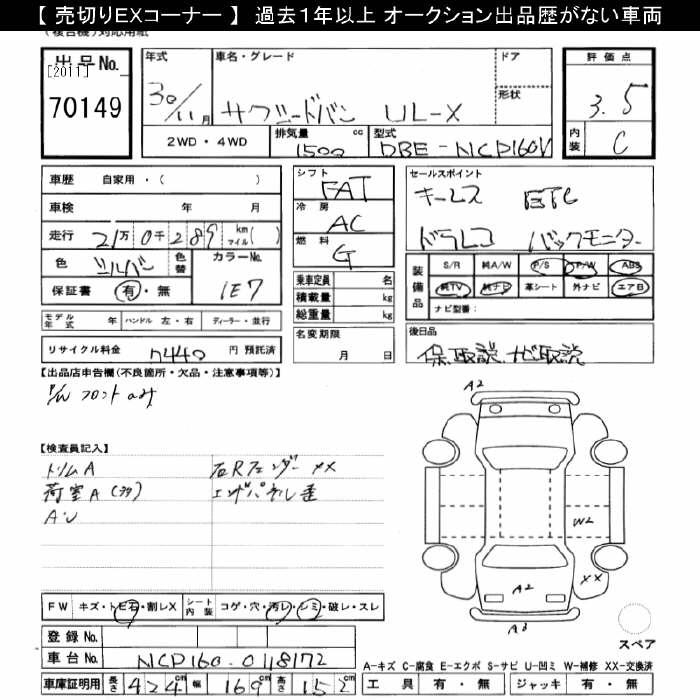 【 売切りEXコーナー 】 過去１年以上 オークション出品歴がない車両
(複合機)対応用紙
出品No.
[2011]
70149
年式
30/11月
車名・グレード
サクシードバン UL-X
ドア
形状
評価点
3.5
内装
C
2WD・4WD
排気量
1500 cc
型式
DBE-NCP160V
車歴 自家用・( )
車検 年 月
走行 21万0千289 km マイル( )
色 シルバー
色替
カラーNo.
1E7
保証書 有・無
モデル年式 年 ハンドル 左・右 ディーラー・並行
リサイクル料金 7440 円 預託済
シフト
FAT
冷房
AC
燃料
G
乗車定員 名
積載量 kg
総重量 kg
名変期限
月 日
セールスポイント
キーレス ETC
ドラレコ バックモニター
装備品
S/R 純A/W P/S P/W ABS
純TV 純ナビ 革シート 外ナビ エアB
ナビ型番：
後日品
保、取説、ナビ取説
【出品店申告欄(不良箇所・欠品・注意事項等)】
P/W フロントのみ
【検査員記入】
トリムA 右Rフェンダー XX
荷室A(多) エンドパネル歪
A・U
FW キズ・トビ石・割レX
シート内装 コゲ・穴・汚レ・シミ・破レ・スレ
登録No.
車台No. NCP160-0118172
車庫証明用 長さ 424 cm 幅 169 cm 高さ 152 cm
A2
W2
XX
A2
A3
スペア
A-キズ C-腐食 E-エクボ S-サビ U-凹ミ W-補修 XX-交換済
工具 有・無 ジャッキ 有・無